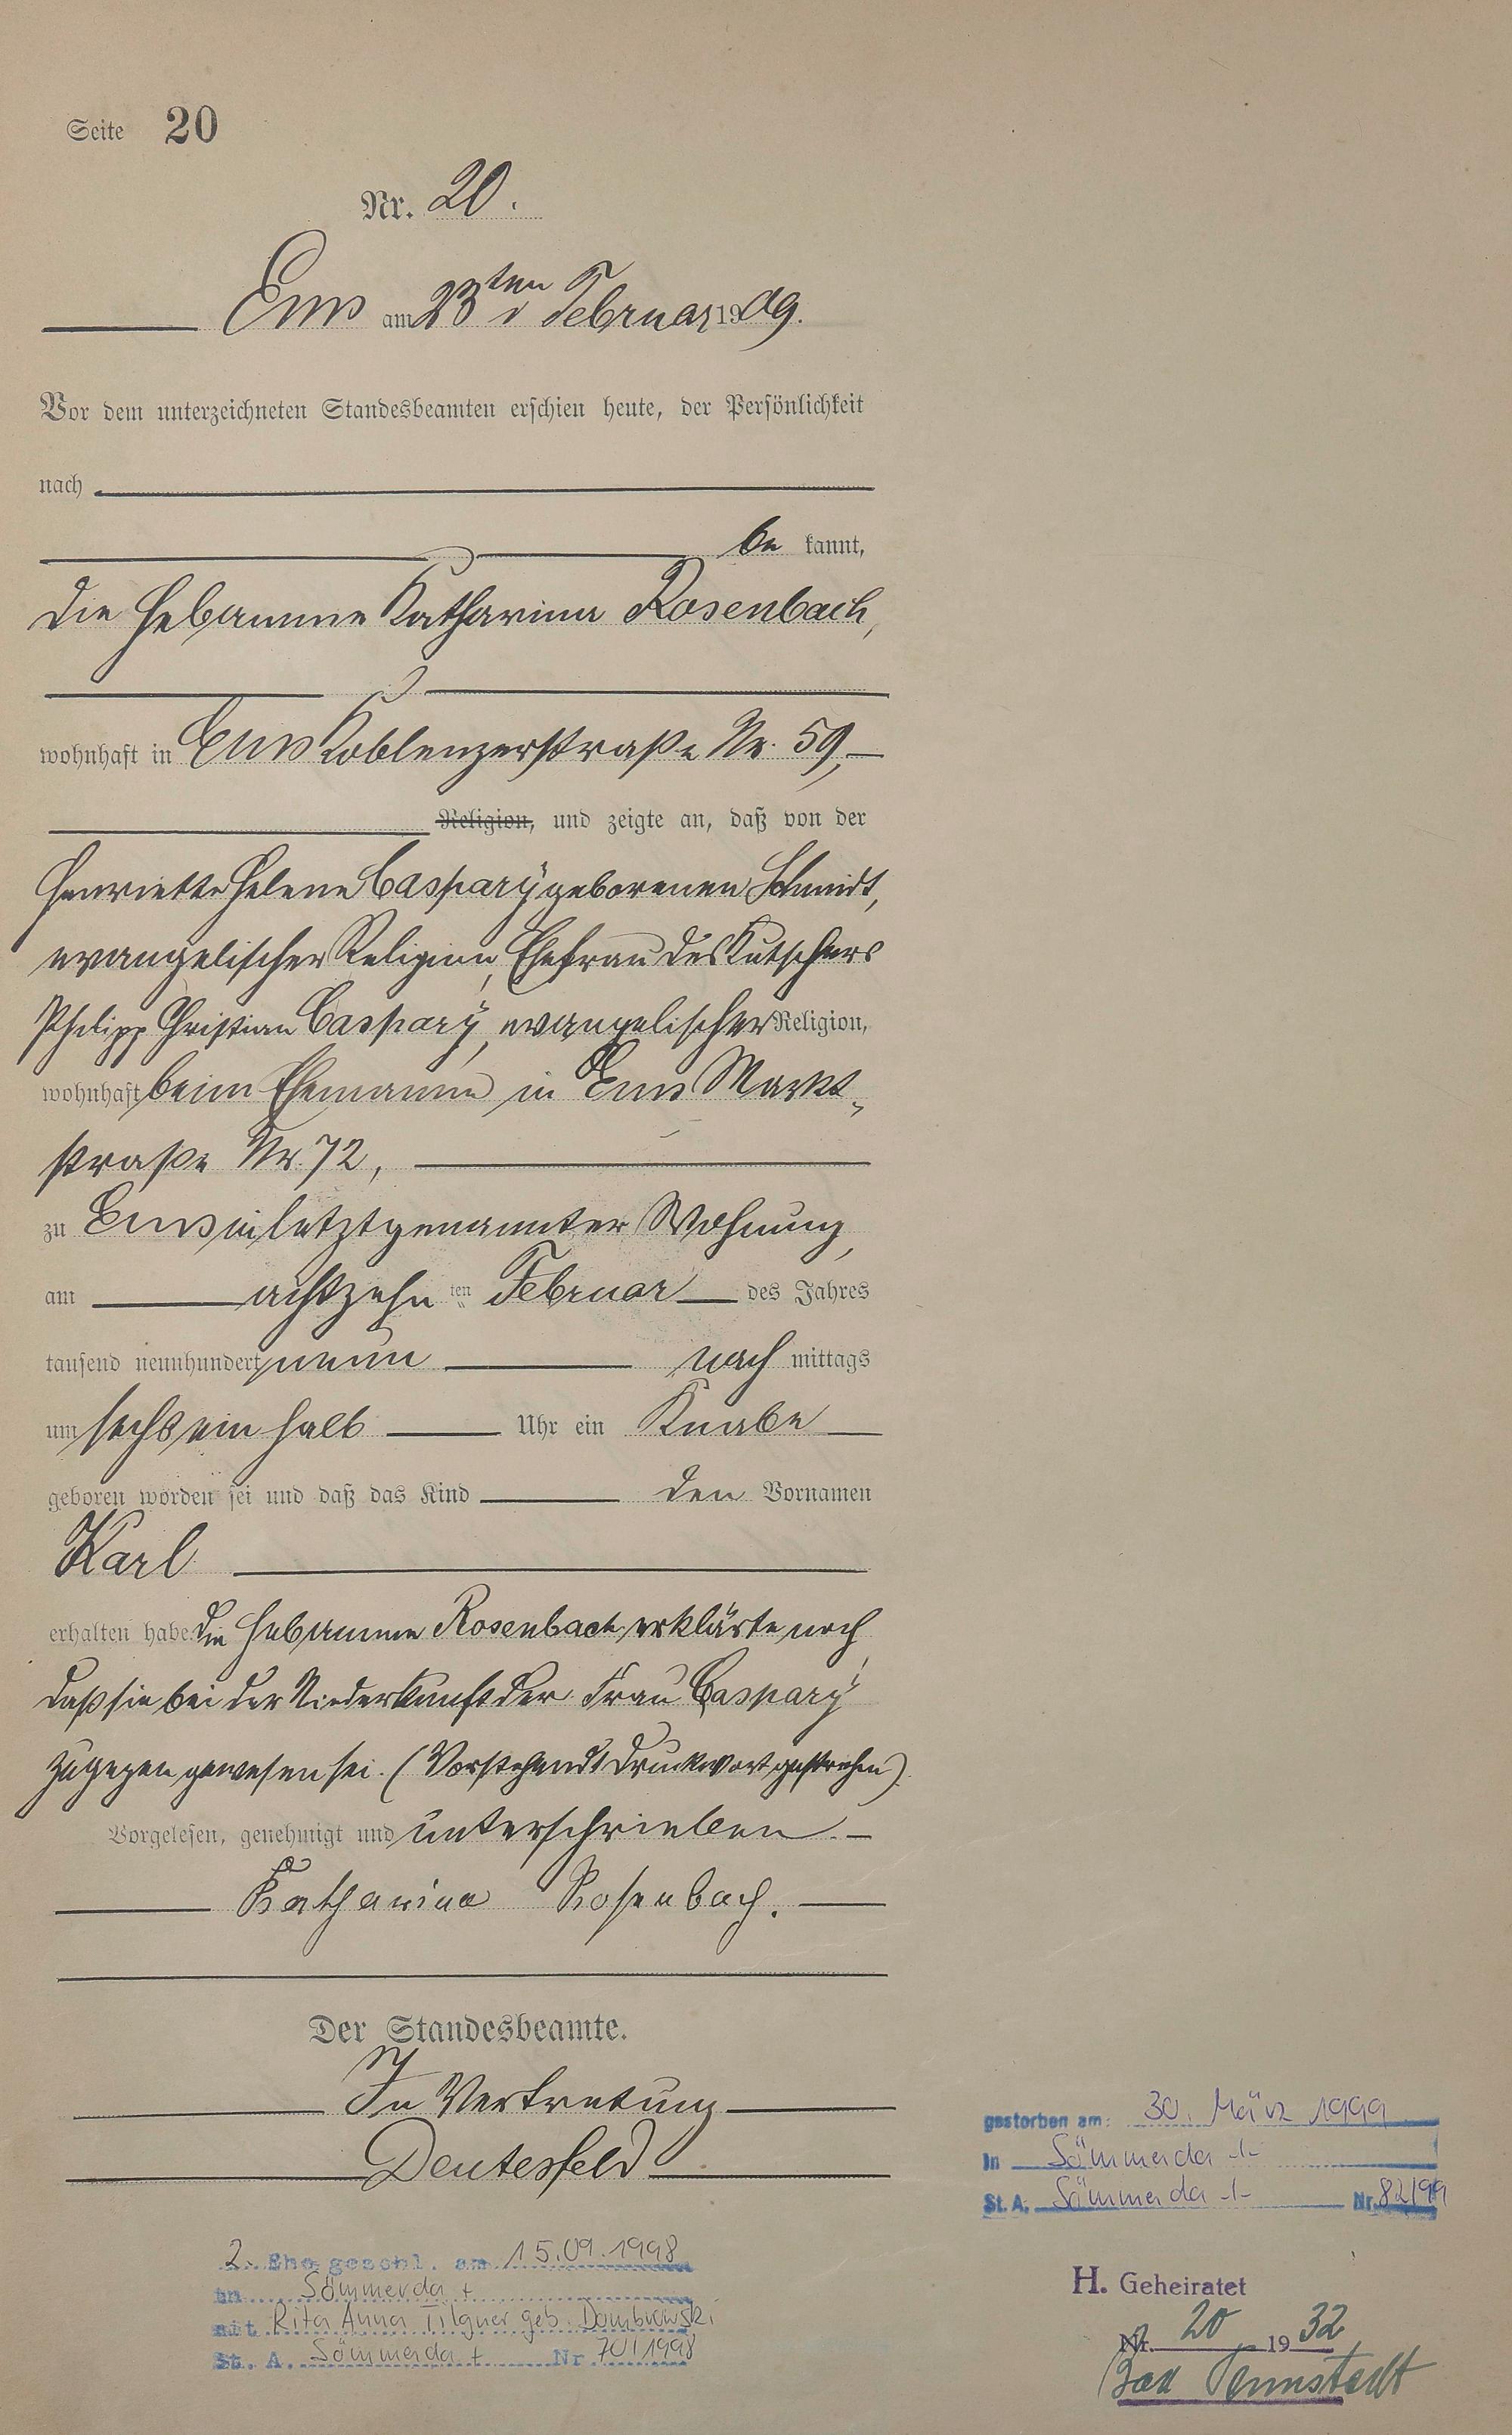 Seite 20
Nr. 20.
Ems am 23ten Februar 1909.
Vor dem unterzeichneten Standesbeamten erschien heute, der Persönlichkeit
nach
be kannt,
die Hebamme Katharina Rosenbach,
wohnhaft in Ems Koblenzerstraße Nr. 59,
Religion, und zeigte an, daß von der
Henriette Helene Caspary geborenen Schmidt,
evangelischer Religion, Ehefrau des Kutschers
Philipp Christian Caspary, evangelischer Religion,
wohnhaft beim Ehemanne in Ems Markt-
straße Nr. 72,
zu Ems in letztgenannter Wohnung,
am achtzehn ten Februar des Jahres
tausend neunhundert neun nach mittags
um sechs ein halb Uhr ein Knabe
geboren worden sei und daß das Kind den Vornamen
Karl
erhalten habe. Die Hebamme Rosenbach erklärte noch,
daß sie bei der Niederkunft der Frau Caspary
zugegen gewesen sei. (Vorstehend 1 Druckwort gestrichen).
Vorgelesen, genehmigt und unterschrieben.
Katharina Rosenbach.
Der Standesbeamte.
In Vertretung
Deutesfeld
gestorben am: 30. März 1999
in Sömmerda -/-
St. A. Sömmerda -/- Nr. 82/99
2. Ehe geschl. am 15.09.1998
in Sömmerda +
mit Rita Anna Tilgner geb. Dombrowski
St. A. Sömmerda + Nr 70/1998
H. Geheiratet
Nr. 20 1932
Bad Tennstedt